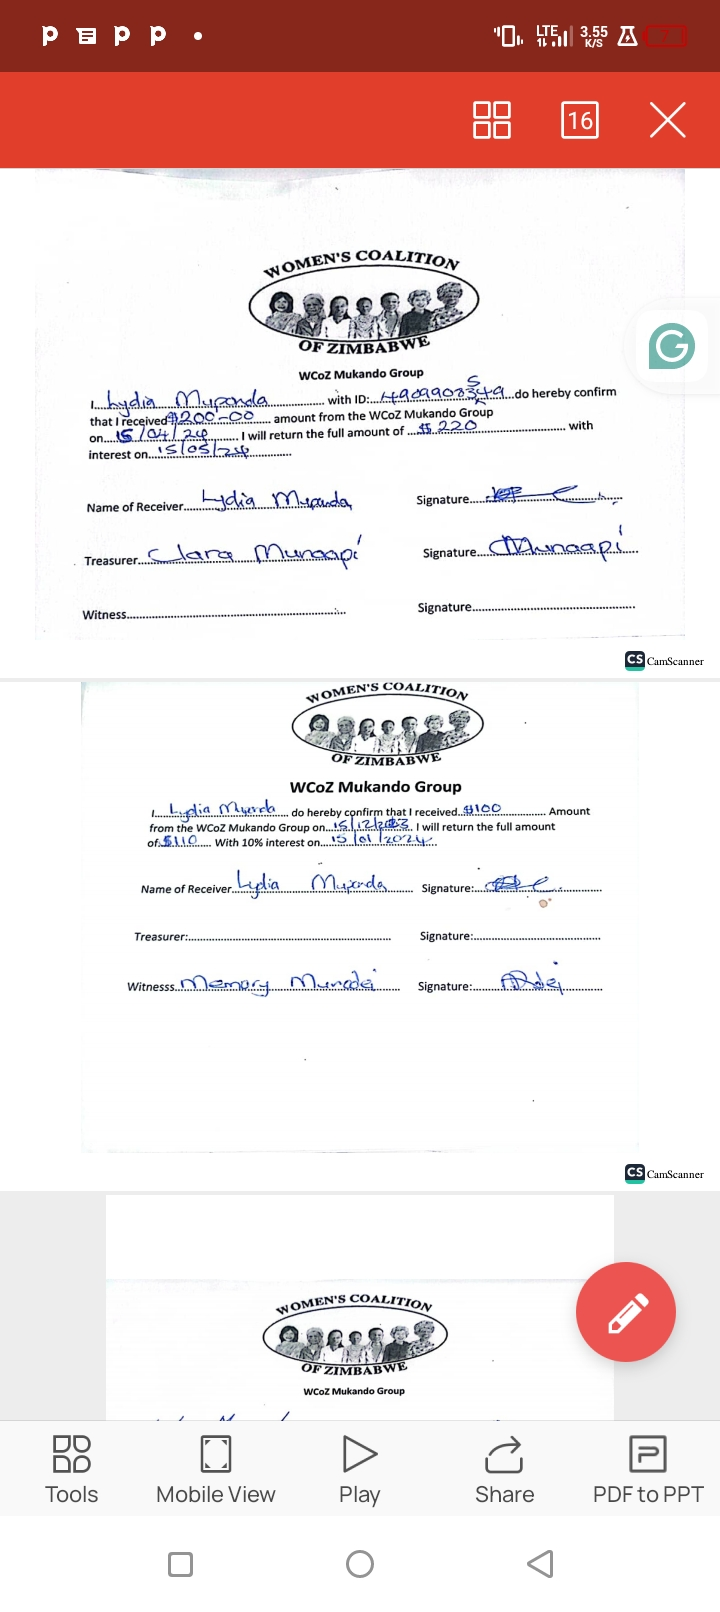 LTE
3.55
K/S
16
WOMEN'S COALITION
OF ZIMBABWE
WCoZ Mukando Group
I...Lydia Muranda... with ID:... ...do hereby confirm
that I received $200-00 amount from the WCoZ Mukando Group
on....15/04/24........ I will return the full amount of ...$ 220............ with
interest on...15/05/24............
Name of Receiver....Lydia Muranda Signature....
Treasurer....Clara Munaapi Signature...CMunaapi.....
Witness............................ Signature............................
CS CamScanner
WOMEN'S COALITION
OF ZIMBABWE
WCoZ Mukando Group
I....Lydia Muranda.... do hereby confirm that I received..$100............ Amount
from the WCoZ Mukando Group on...15/12/2023. I will return the full amount
of:$110..... With 10% interest on...15/01/2024...
Name of Receiver...Lydia Muranda....... Signature:...
Treasurer:............................ Signature:............................
Witnesss...Memory....... Signature:...
CS CamScanner
WOMEN'S COALITION
OF ZIMBABWE
WCoZ Mukando Group
Tools
Mobile View
Play
Share
PDF to PPT